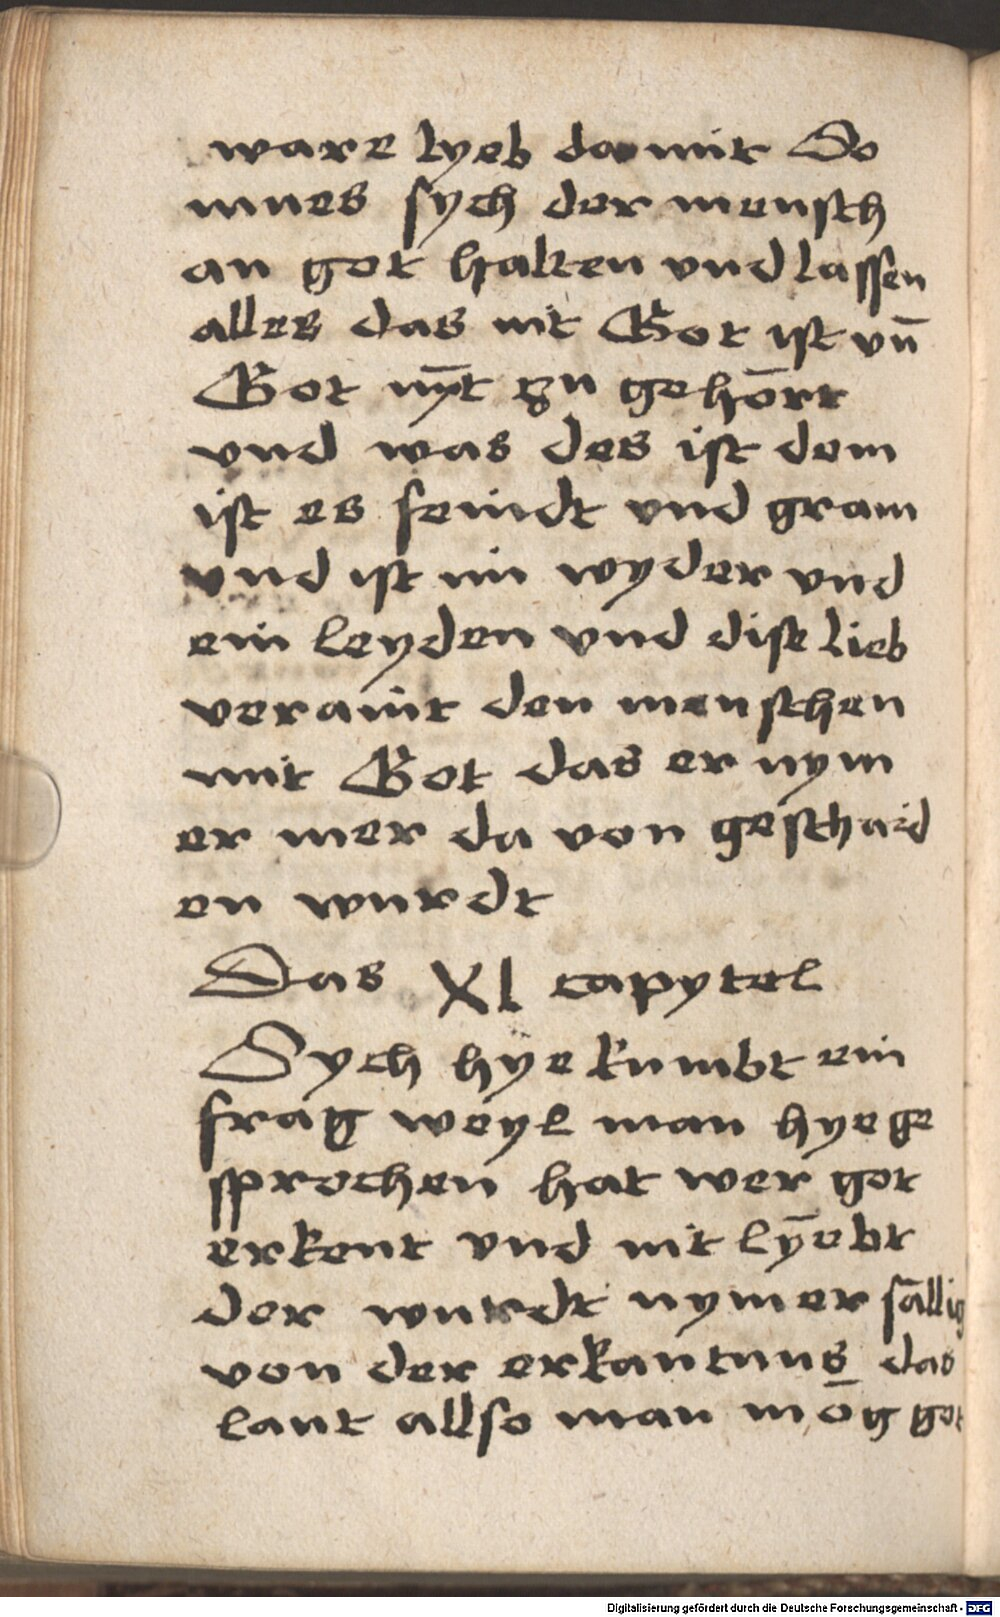 ware lyeb da mit So
mues sych der mensch
an got halten vnd lassen
alles das nit Got ist vn̄
Got nyt̄ zu gehōrt
vnd was des ist dem
ist es feindt vnd gram
vnd ist im wyder vnd
ein leyden vnd dise lieb
veraint den menschen
mit Got das er nym
er mer da von geschaid
en wurdt
Das XL capytel
Sych hye kumbt ein
frag weyl man hye ge
sprochen hat wer got
erkent vnd nit lȳebt
der wurdt nymer sāllig
von der erkantnus das
laut allso man mōg got
Digitalisierung gefördert durch die Deutsche Forschungsgemeinschaft - DFG